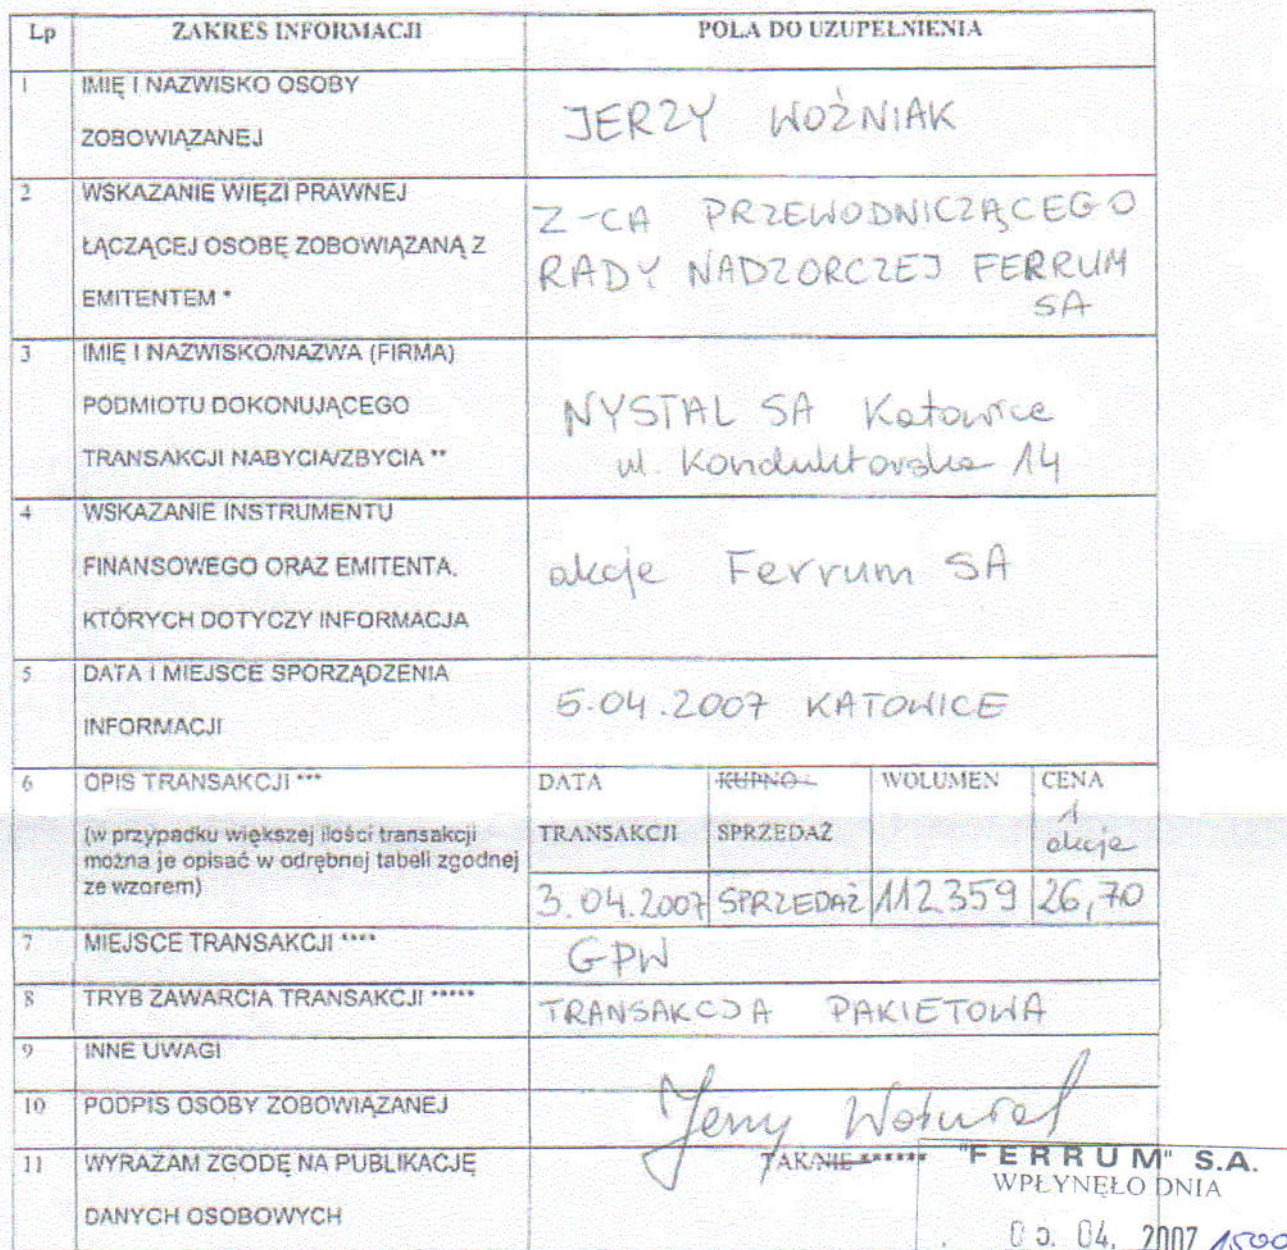 Lp ZAKRES INFORMACJI POLA DO UZUPEŁNIENIA
1 IMIĘ I NAZWISKO OSOBY
ZOBOWIĄZANEJ
JERZY WOŹNIAK
2 WSKAZANIE WIĘZI PRAWNEJ
ŁĄCZĄCEJ OSOBĘ ZOBOWIĄZANĄ Z
EMITENTEM *
Z-CA PRZEWODNICZĄCEGO
RADY NADZORCZEJ FERRUM
SA
3 IMIĘ I NAZWISKO/NAZWA (FIRMA)
PODMIOTU DOKONUJĄCEGO
TRANSAKCJI NABYCIA/ZBYCIA **
NYSTAL SA Katowice
ul. Konduktorska 14
4 WSKAZANIE INSTRUMENTU
FINANSOWEGO ORAZ EMITENTA,
KTÓRYCH DOTYCZY INFORMACJA
akcje Ferrum SA
5 DATA I MIEJSCE SPORZĄDZENIA
INFORMACJI
5.04.2007 KATOWICE
6 OPIS TRANSAKCJI ***
(w przypadku większej ilości transakcji
można je opisać w odrębnej tabeli zgodnej
ze wzorem)
DATA KUPNO WOLUMEN CENA
TRANSAKCJI SPRZEDAŻ 1
akcje
3.04.2007 SPRZEDAŻ 112.359 26,70
7 MIEJSCE TRANSAKCJI ****
GPW
8 TRYB ZAWARCIA TRANSAKCJI *****
TRANSAKCJA PAKIETOWA
9 INNE UWAGI
10 PODPIS OSOBY ZOBOWIĄZANEJ
Jerzy Woźniak
11 WYRAŻAM ZGODĘ NA PUBLIKACJĘ
DANYCH OSOBOWYCH
TAK/NIE ******
"FERRUM" S.A.
WPŁYNĘŁO DNIA
05. 04. 2007 1500